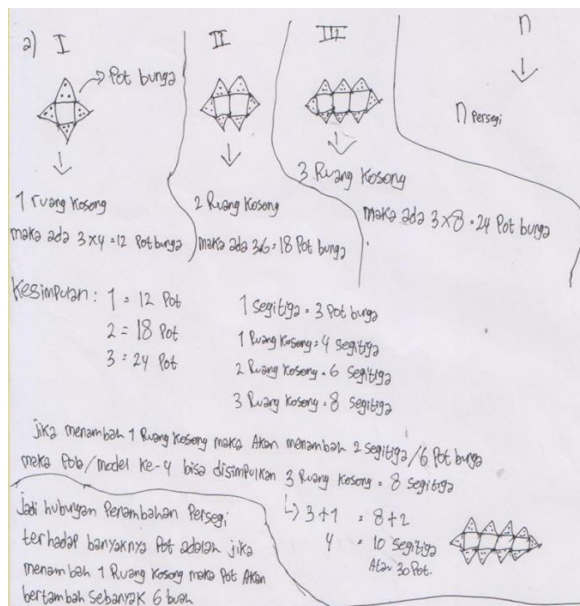 a) I
II
III
n
Pot bunga
n Persegi
1 ruang kosong
maka ada 3x4=12 Pot bunga
2 Ruang Kosong
maka ada 3x6=18 Pot bunga
3 Ruang Kosong
maka ada 3x8=24 Pot bunga
Kesimpulan: 1 = 12 Pot
2 = 18 Pot
3 = 24 Pot
1 segitiga = 3 Pot bunga
1 Ruang kosong = 4 segitiga
2 Ruang kosong = 6 segitiga
3 Ruang kosong = 8 segitiga
jika menambah 1 Ruang kosong maka Akan menambah 2 segitiga / 6 Pot bunga
maka Pola/model ke-4 bisa disimpulkan 3 Ruang kosong = 8 segitiga
3+1 = 8+2
4 = 10 segitiga
Atau 30 Pot.
Jadi hubungan Penambahan Persegi
terhadap banyaknya Pot adalah jika
menambah 1 Ruang kosong maka Pot Akan
bertambah sebanyak 6 buah